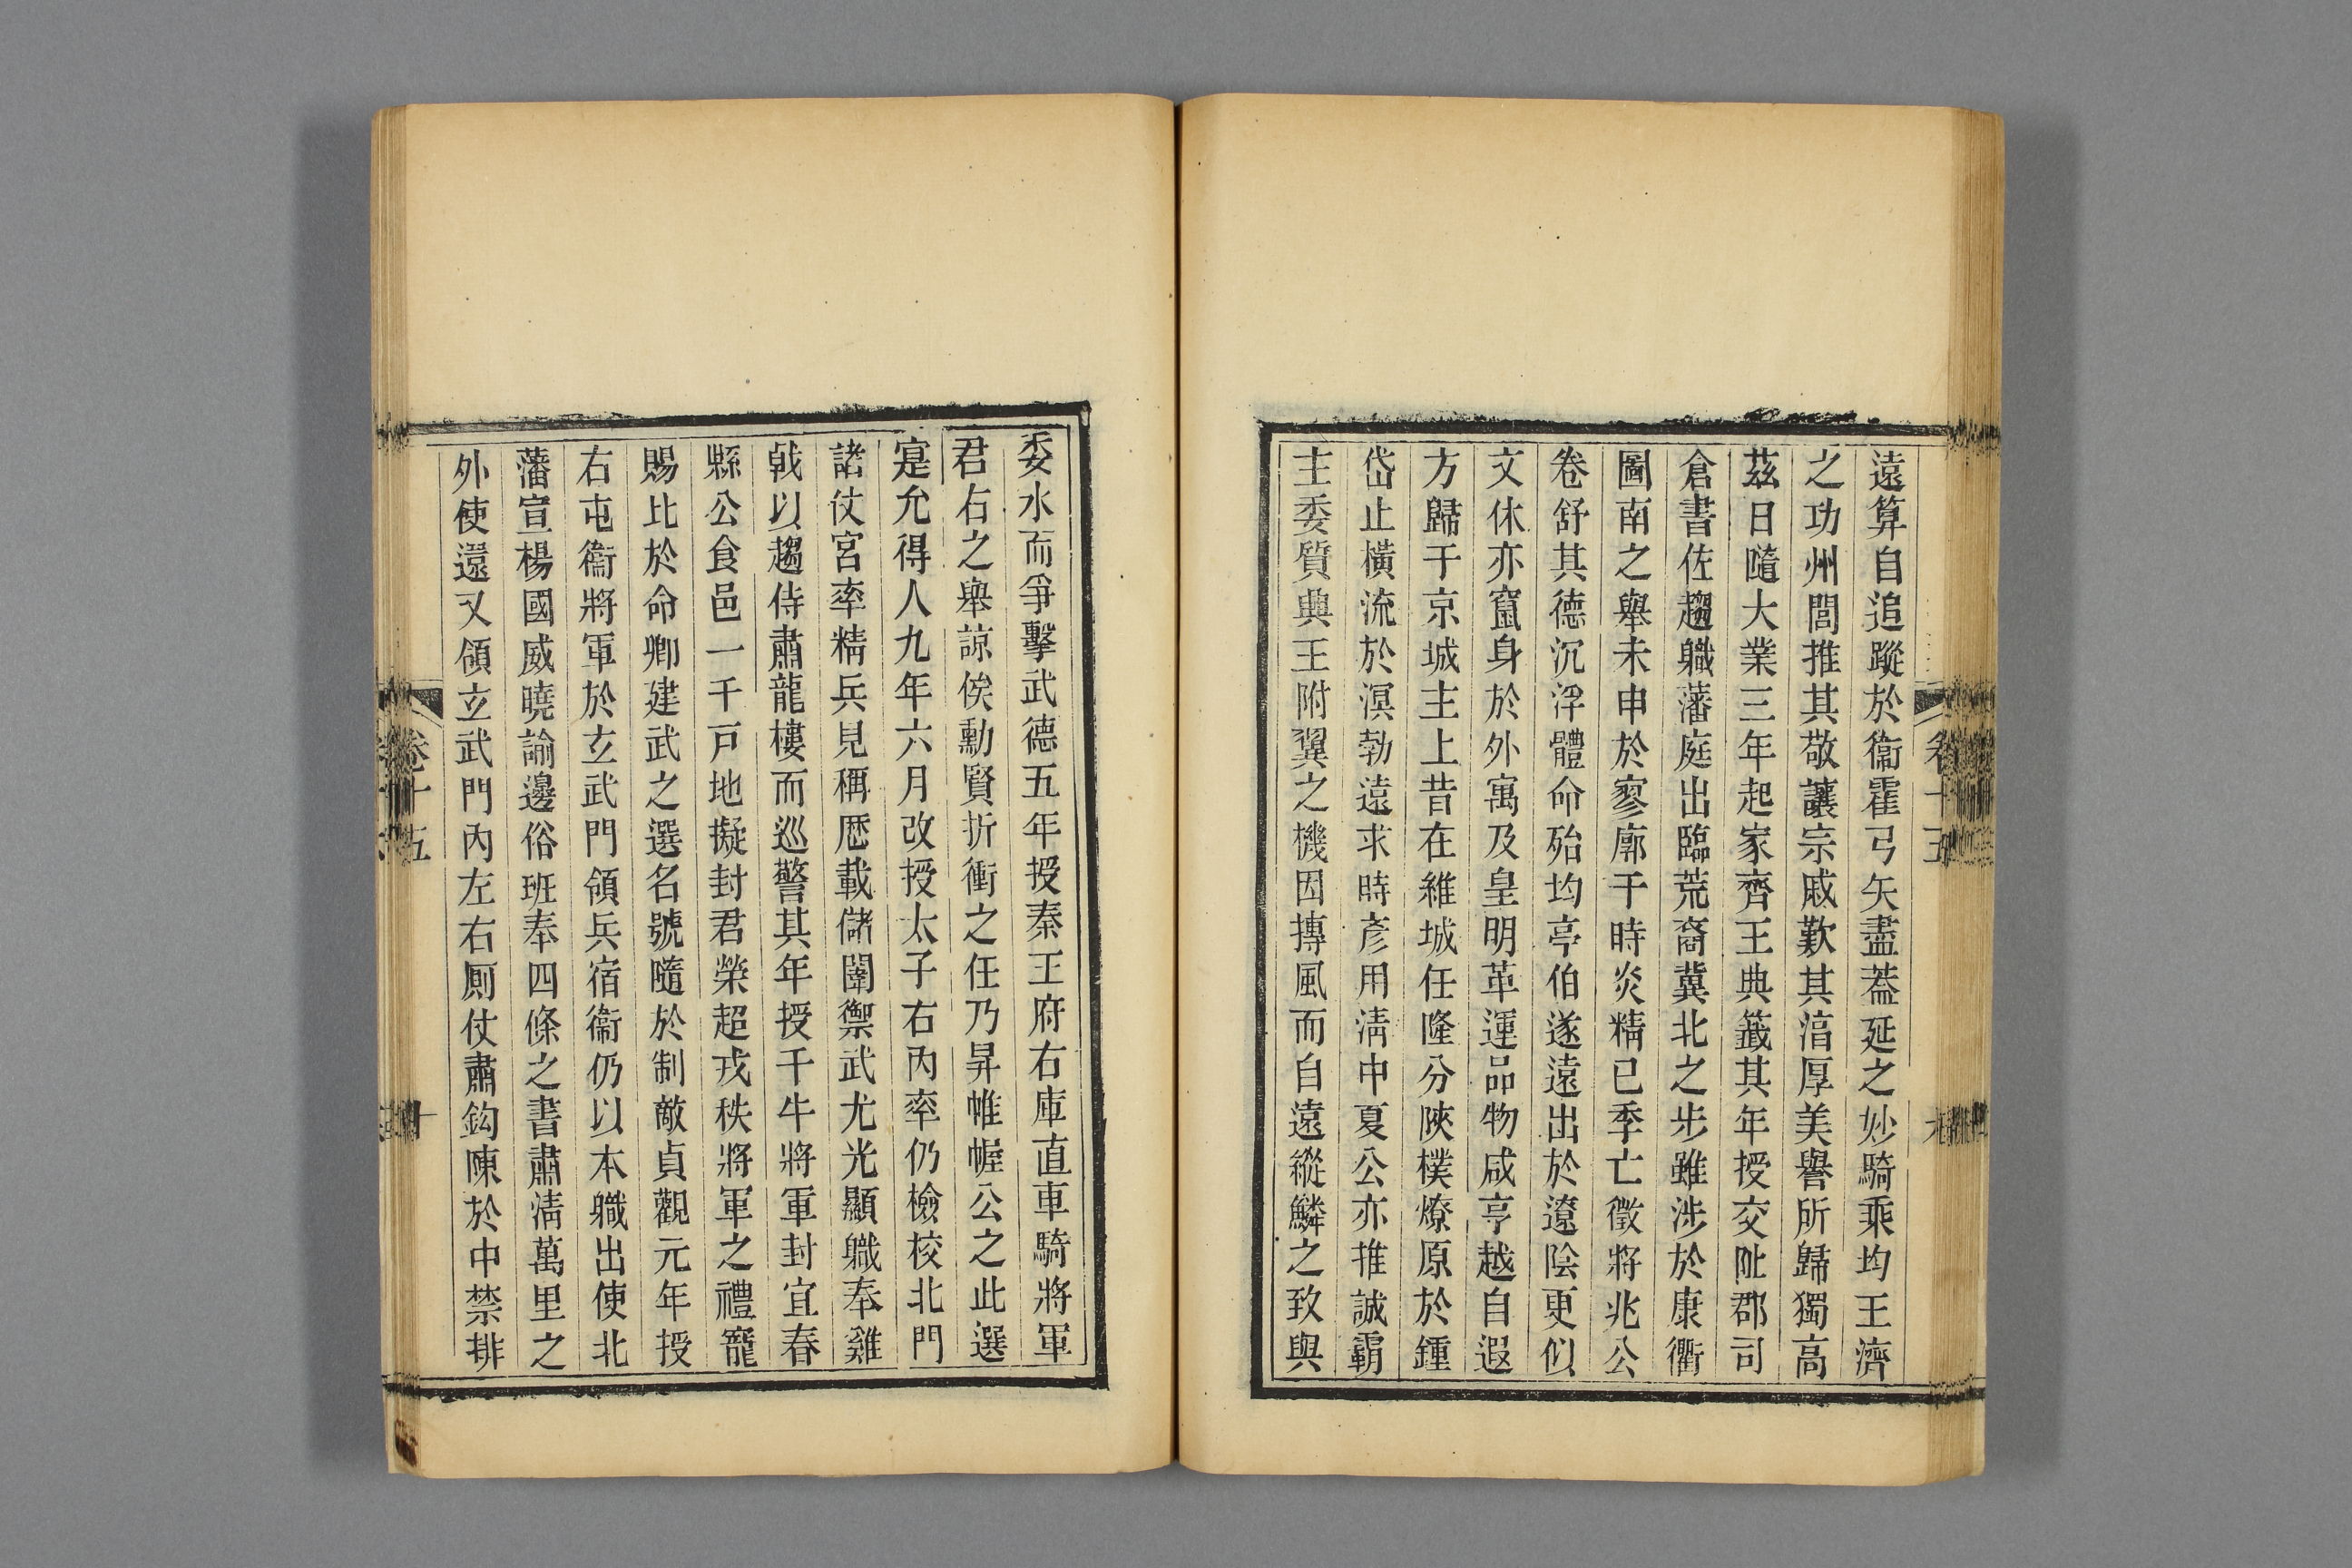 遠算自追蹤於衞霍弓矢盡葢延之妙騎乘均王濟
之功州閭推其敬讓宗戚歎其湻厚美譽所歸獨高
茲日隨大業三年起家齊王典籤其年授交阯郡司
倉書佐趨職藩庭出臨荒裔冀北之步雖涉於康衢
圖南之舉未申於寥廓于時炎精已季亡徵將兆公
卷舒其德沉浮體命殆均亭伯遂遠出於遼陰更似
文休亦竄身於外寓及皇明革運品物咸亨越自遐
方歸于京城主上昔在維城任隆分陝樸燎原於鍾
岱止橫流於溟勃遠求時彥用淸中夏公亦推誠霸
主委質典王附翼之機因摶風而自遠縱鱗之致與
卷十五
委水而爭擊武德五年授秦王府右庫直車騎將軍
君右之舉諒俟勳賢折衝之任乃昇帷幄公之此選
寔允得人九年六月改授太子右內率仍檢校北門
諸仗宮率精兵見稱歷載儲闈禦武尤光顯職奉雞
戟以趨侍肅龍樓而巡警其年授千牛將軍封宜春
縣公食邑一千戸地擬封君榮超戎秩將軍之禮寵
賜比於命卿建武之選名號隨於制敵貞觀元年授
右屯衞將軍於玄武門領兵宿衞仍以本職出使北
藩宣楊國威曉諭邊俗班奉四條之書肅淸萬里之
外使還又領玄武門內左右厠仗肅鈎陳於中禁排
卷十五